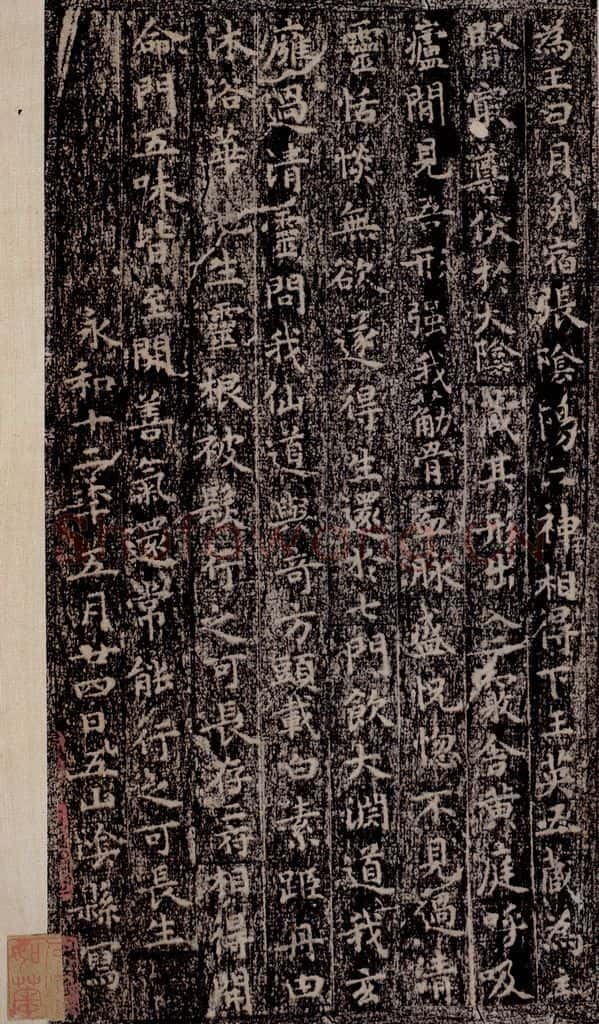 為王日月列宿張陰陽二神相得下玉英五藏為主
腎㝡尊伏於大陰藏其形出入二竅舍黃庭呼吸
廬間見吾形强我筋骨血脉盛恍惚不見過清
靈恬惔無欲遂得生還於七門飲大淵道我玄
膺過清靈問我仙道與奇方頭載白素距丹田
沐浴華池生靈根被髮行之可長存二府相得開
命門五味皆至開善氣還常能行之可長生
永和十二年五月廿四日五山陰縣寫
Shufawang.CN